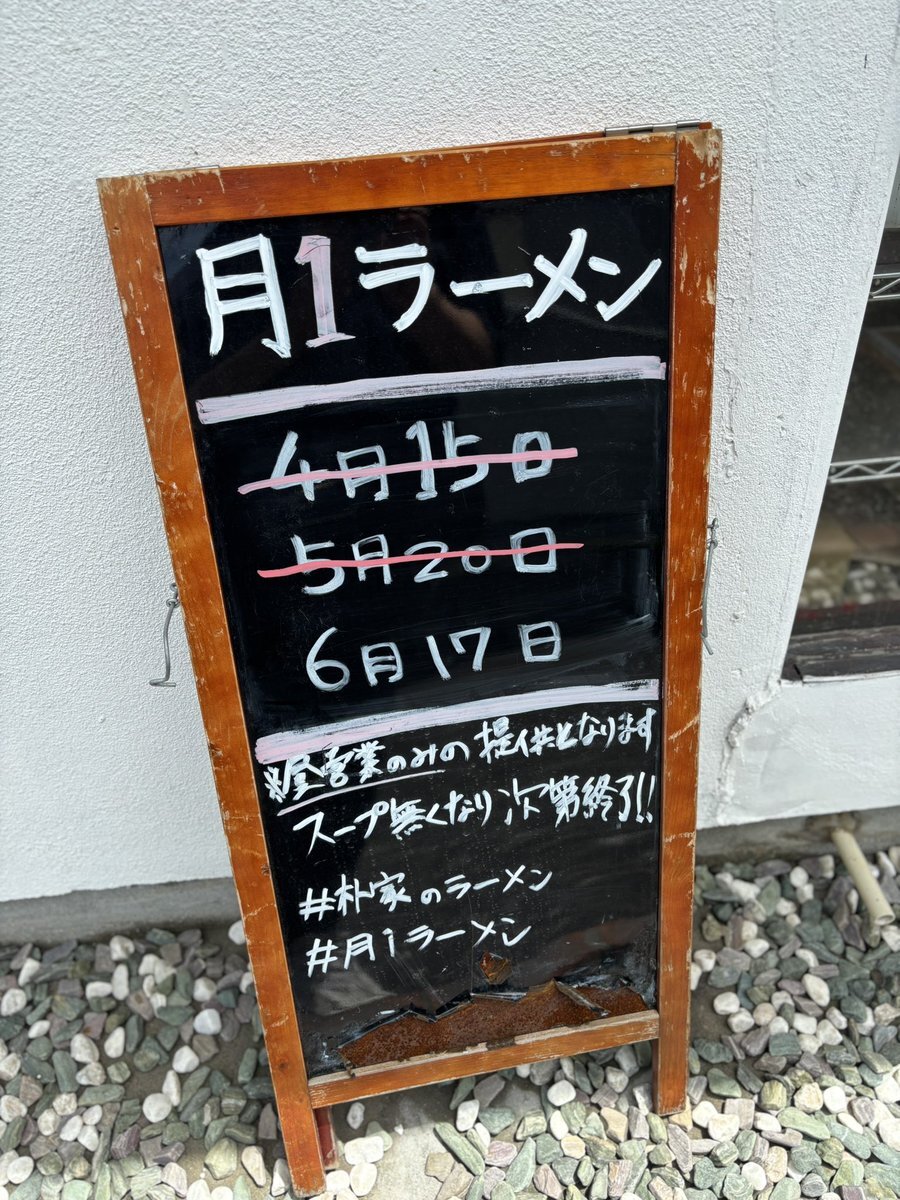 月1ラーメン
4月15日
5月20日
6月17日
※昼営業のみの提供となります
スープ無くなり次第終了!!
#朴家のラーメン
#月1ラーメン